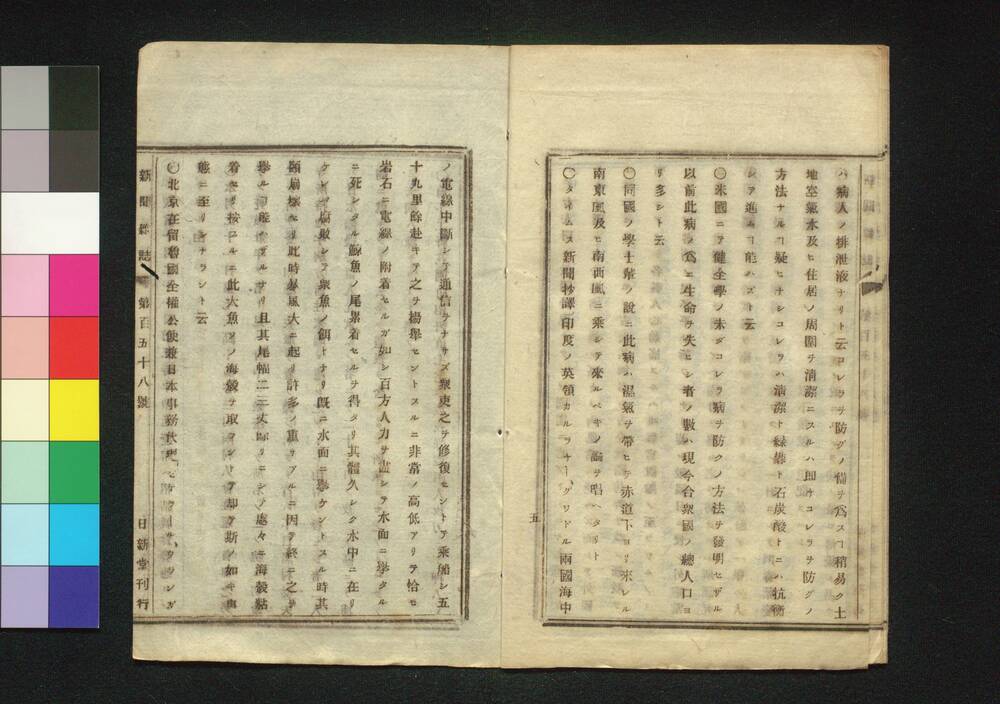 ハ病人ノ排泄液ナリト云コレラヲ防グノ備ヲ爲スヿ稍易ク土
地空氣水及ヒ住居ノ周圍ヲ淸潔ニスルハ即チコレラヲ防グノ
方法ナルヿ疑ヒナシコレラハ淸潔ト緑礬ト石炭酸トニハ抗衡
シテ進ムヿ能ハズト云
〇米國ニテ健全學ノ未ダコレラ病ヲ防クノ方法ヲ發明セザル
以前此病ノ爲ニ生命ヲ失ヒシ者ノ數ハ現今合衆國ノ總人口ヨ
リ多シト云
〇同國ノ學士輩ノ說ニ此病ハ濕氣ヲ帶ヒテ赤道下ヨリ來レル
南東風及ヒ南西風ニ乘シテ來ルベキノ論ヲ唱ヘタリト
〇タイムス新聞抄譯印度ノ英領カルラチートグワドル兩國海中
五
ノ電線中斷シテ通信ヲナサズ衆吏之ヲ修復セントテ乘船シ五
十九里餘赴キテ之ヲ揚擧セントスルニ非常ノ高低アリテ恰モ
岩石ニ電線ノ附着セルガ如シ百方人力ヲ盡シテ水面ニ擧タル
ニ死シタル鯨魚ノ尾纍着セルヲ得タリ其體久シク水中ニ在リ
ケレバ腐敗シテ衆魚ノ餌トナリ既ニ水面ニ擧ケントスル時其
頭崩壞セリ此時暴風大ニ起リ許多ノ重リブルニ因テ終ニ之ヲ
擧ル能ハザルナリ且其尾幅二三丈餘リニシテ處々ニ海殼粘
着セリ按スルニ此大魚ソノ海殼ヲ取ラントテ却テ斯ノ如キ
態ニ至リシナラント云
〇北京在留魯國全權公使兼日本事務
新聞雜誌 第百五十八號
日新堂刊行